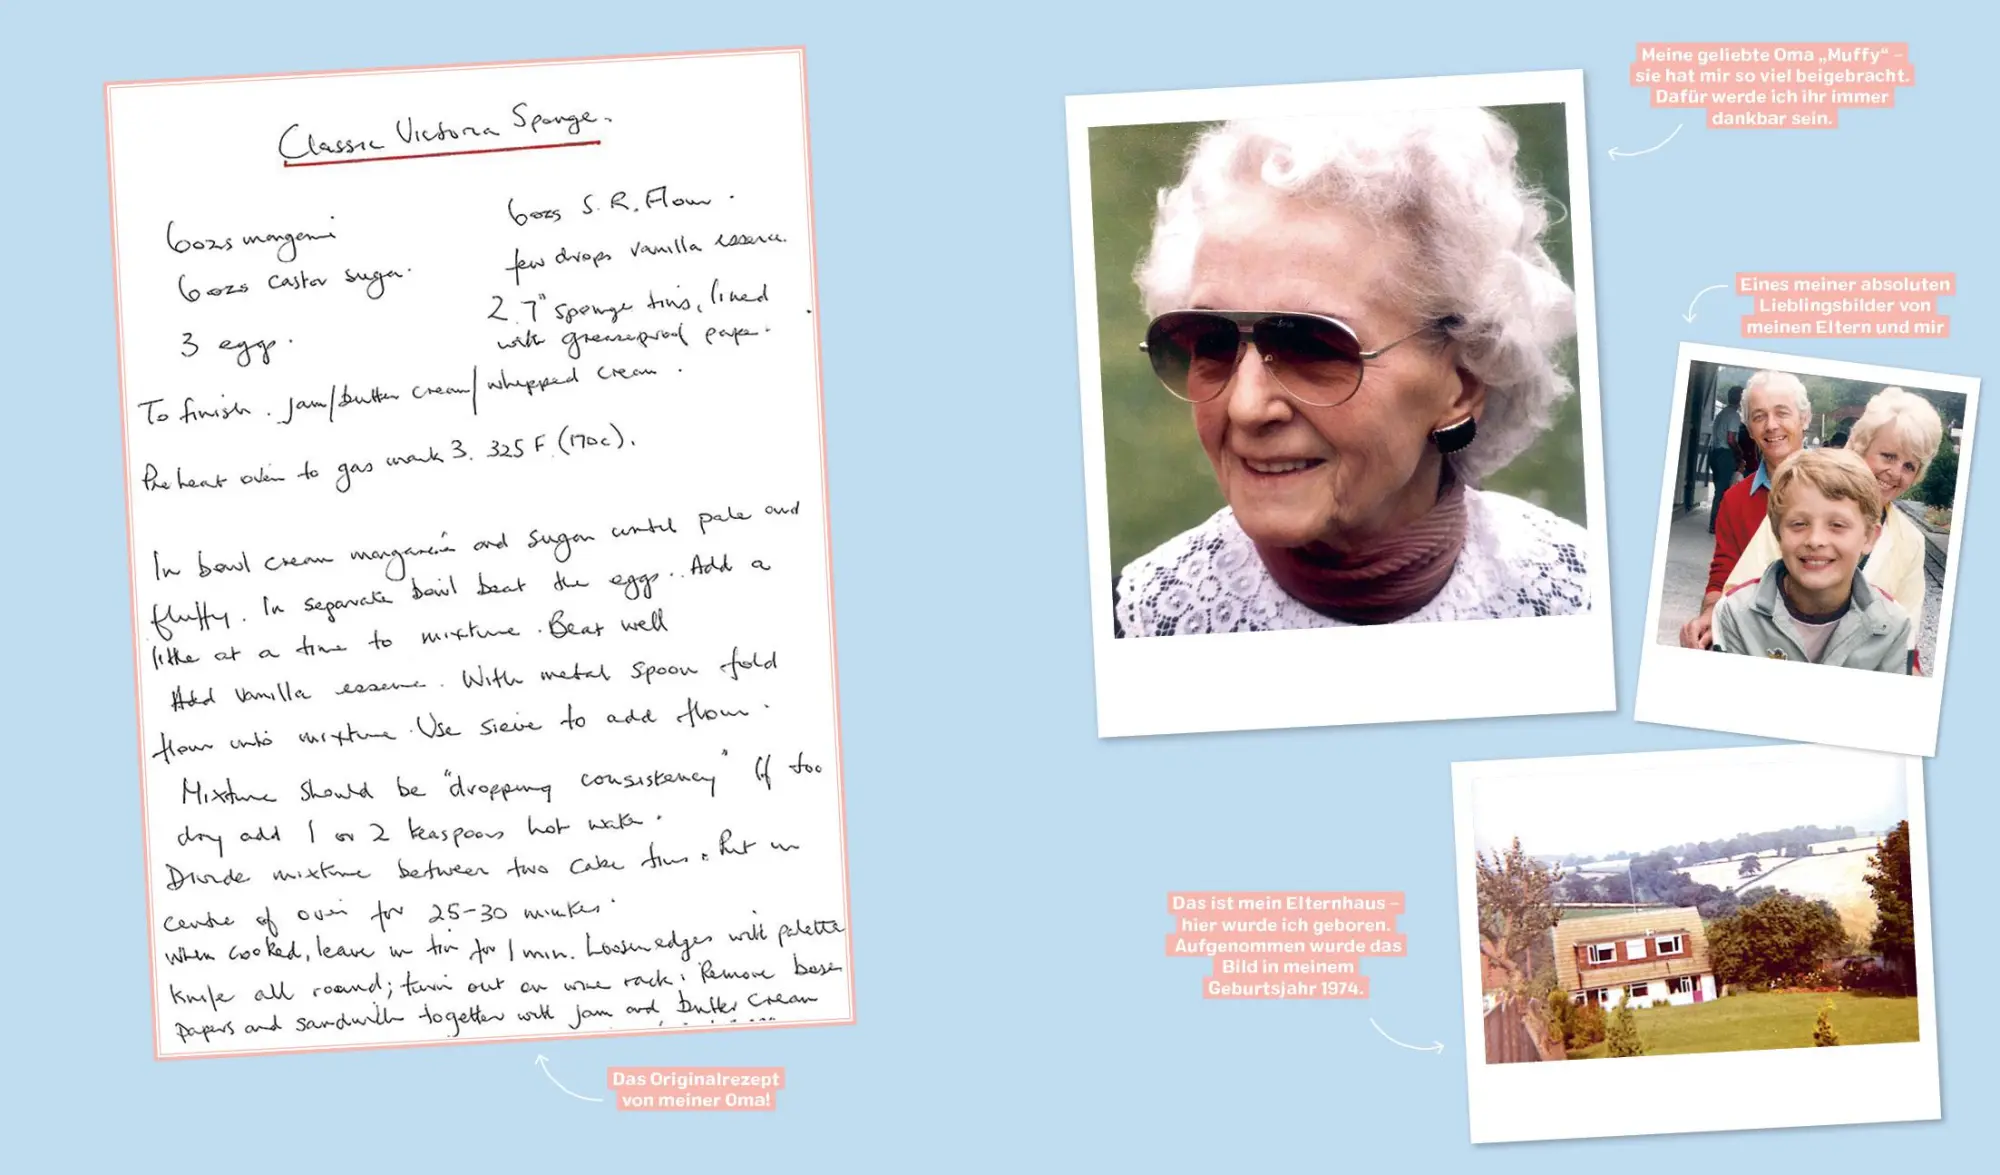 Classic Victoria Sponge.
6ozs margarine
6ozs castor sugar.
3 eggs.
6ozs S.R. Flour.
few drops vanilla essence.
2 7" sponge tins, lined
with greaseproof paper.
To finish. Jam/butter cream/whipped cream.
Pre heat oven to gas mark 3. 325 F. (170c).
In bowl cream margarine and sugar until pale and
fluffy. In separate bowl beat the eggs. Add a
little at a time to mixture. Beat well
Add vanilla essence. With metal spoon fold
flour into mixture. Use sieve to add flour.
Mixture should be "dropping consistency" If too
dry add 1 or 2 teaspoons hot water.
Divide mixture between two cake tins. Put in
centre of oven for 25-30 minutes.
When cooked, leave in tin for 1 min. Loosen edges with palette
knife all round; turn out on wire rack. Remove base
papers and sandwich together with jam and butter cream
Das Originalrezept
von meiner Oma!
Meine geliebte Oma „Muffy“ –
sie hat mir so viel beigebracht.
Dafür werde ich ihr immer
dankbar sein.
Eines meiner absoluten
Lieblingsbilder von
meinen Eltern und mir
Das ist mein Elternhaus –
hier wurde ich geboren.
Aufgenommen wurde das
Bild in meinem
Geburtsjahr 1974.